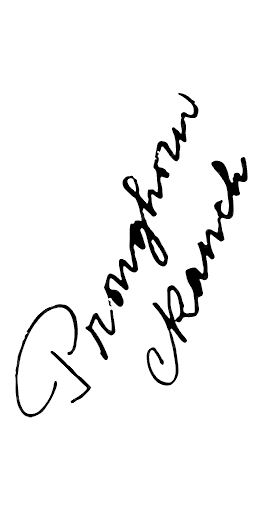 Pronghorn
Ranch